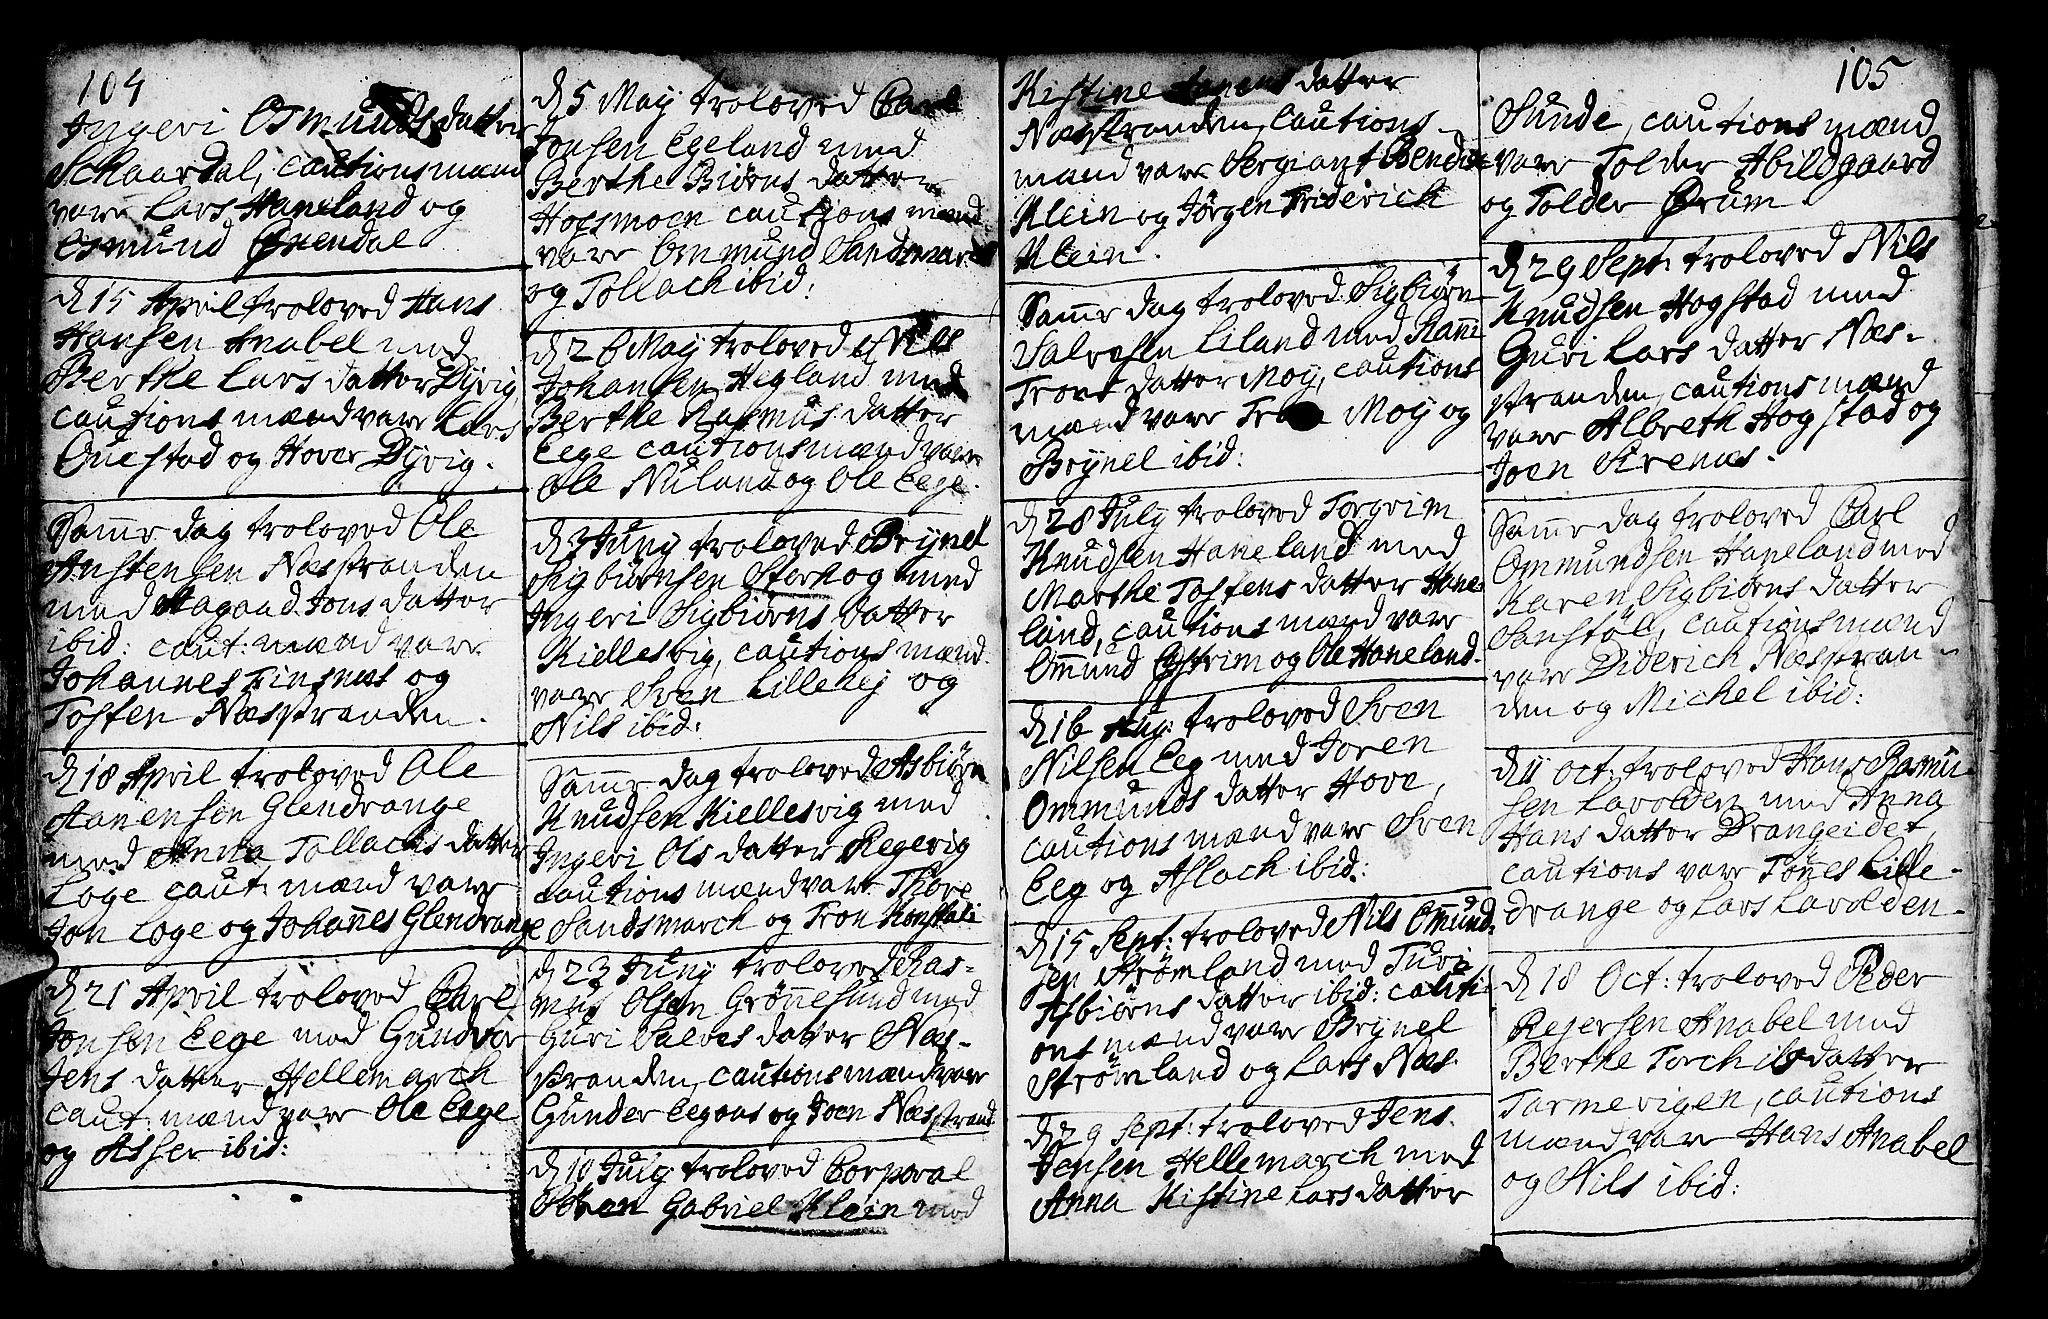 104
Ingeri Osmunds datter
Schaardal, cautions mænd
vare Lars Haneland og
Osmund Ørendal
d 15 April troloved Hans
Hansen Anabel med
Berthe Lars datter Dÿvig
cautions mænd vare Lars
Ouestad og Hover Dÿvig.
Samme dag troloved Ole
Anstensen Næsstranden
med Aagaad Jons datter
ibid: caut: mænd vare
Johannes Tinsnæs og
Tosten Næsstranden.
d 18 April troloved Ole
Aanensen Glendrange
med Anna Tollachs datter
Loge caut: mænd vare
Jon Loge og Johannes Glendrange
d 21 April troloved Carl
Jonsen Eege med Gundvor
Jens datter Hellemarch
caut: mænd vare Ole Eege
og Asser ibid:
d 5 Maÿ troloved Carl
Jonsen Egeland med
Berthe Biørns datter
Hofsmoen cautions mænd
vare Ommund Sandsmarch
og Tollach ibid:
d 26 Maÿ troloved Nils
Johansen Hegland med
Berthe Rasmus datter
Eege cautions mænd vare
Ole Nuland og Ole Eege.
d 3 Junÿ troloved Brÿnel
Sigbiørnsen Sterkog med
Ingeri Sigbiørns datter
Kiellesvig, cautions mænd
vare Sven Lillehej og
Nils ibid:
Samme dag troloved Asbiørn
Knudsen Kiellesvig med
Ingeri Ols datter Regevig
cautions mænd vare Thore
Sandsmarch og Tron
d 23 Junÿ troloved Ras-
mus Olsen Grønnesund med
Guri Salves datter Næs-
stranden, cautions mænd vare
Gunder Eegaas og Joen Næsstrand.
d 10 Julÿ troloved Corporal
Søren Gabriel Klein med
Kistine Aanens datter
Næsstranden, cautions
mænd vare Sergiant Bendix
Klein og Jørgen Friderich
Klein.
Samme dag troloved Sigbiørn
Salvesen Liland med Ranni
Trons datter Moÿ, cautions
mænd vare Moÿ og
Brÿnel ibid:
d 28 Julÿ troloved Torgrim
Knudsen Haneland med
Marthe Tostens datter Hane-
land, cautions mænd vare
Ommund Østrim og Ole Haneland.
d 16 Aug: troloved Sven
Nilsen Eeg med Joren
Ommunds datter Hove,
cautions mænd vare Sven
Eeg og Aslach ibid:
d 15 Sept: troloved Nils Ommund-
sen Strømland med Turi
Asbiørns datter ibid: cauti-
ons mænd vare Brÿnel
Strømland og Lars Næs
d 29 Sept: troloved Jens
Jensen Hellemarch med
Anna Kistine Lars datter
105
Sunde, cautions mænd
vare Tolder Abildgaard
og Tolder Ørum
d 29 Sept: troloved Nils
Knudsen Hogstad med
Guri Lars datter Næs-
stranden, cautions mænd
vare Albreth Hogstad og
Joen Sirenæs.
Samme dag troloved Carl
Ommundsen Haneland med
Karen Sigbiørns datter
Sanstøl, cautions mænd
vare Diderich Næsstran-
den og Michel ibid:
d 11 Oct: troloved Hans Rasmu-
sen Lavolden med Anna
Hans datter Drangeidet,
cautions vare Tønes Lille-
drange og Lars Lavolden.
d 18 Oct: troloved Peder
Rejersen Anabel med
Berthe Torchils datter
Tarmevigen, cautions
mænd vare Hans Anabel
og Nils ibid: